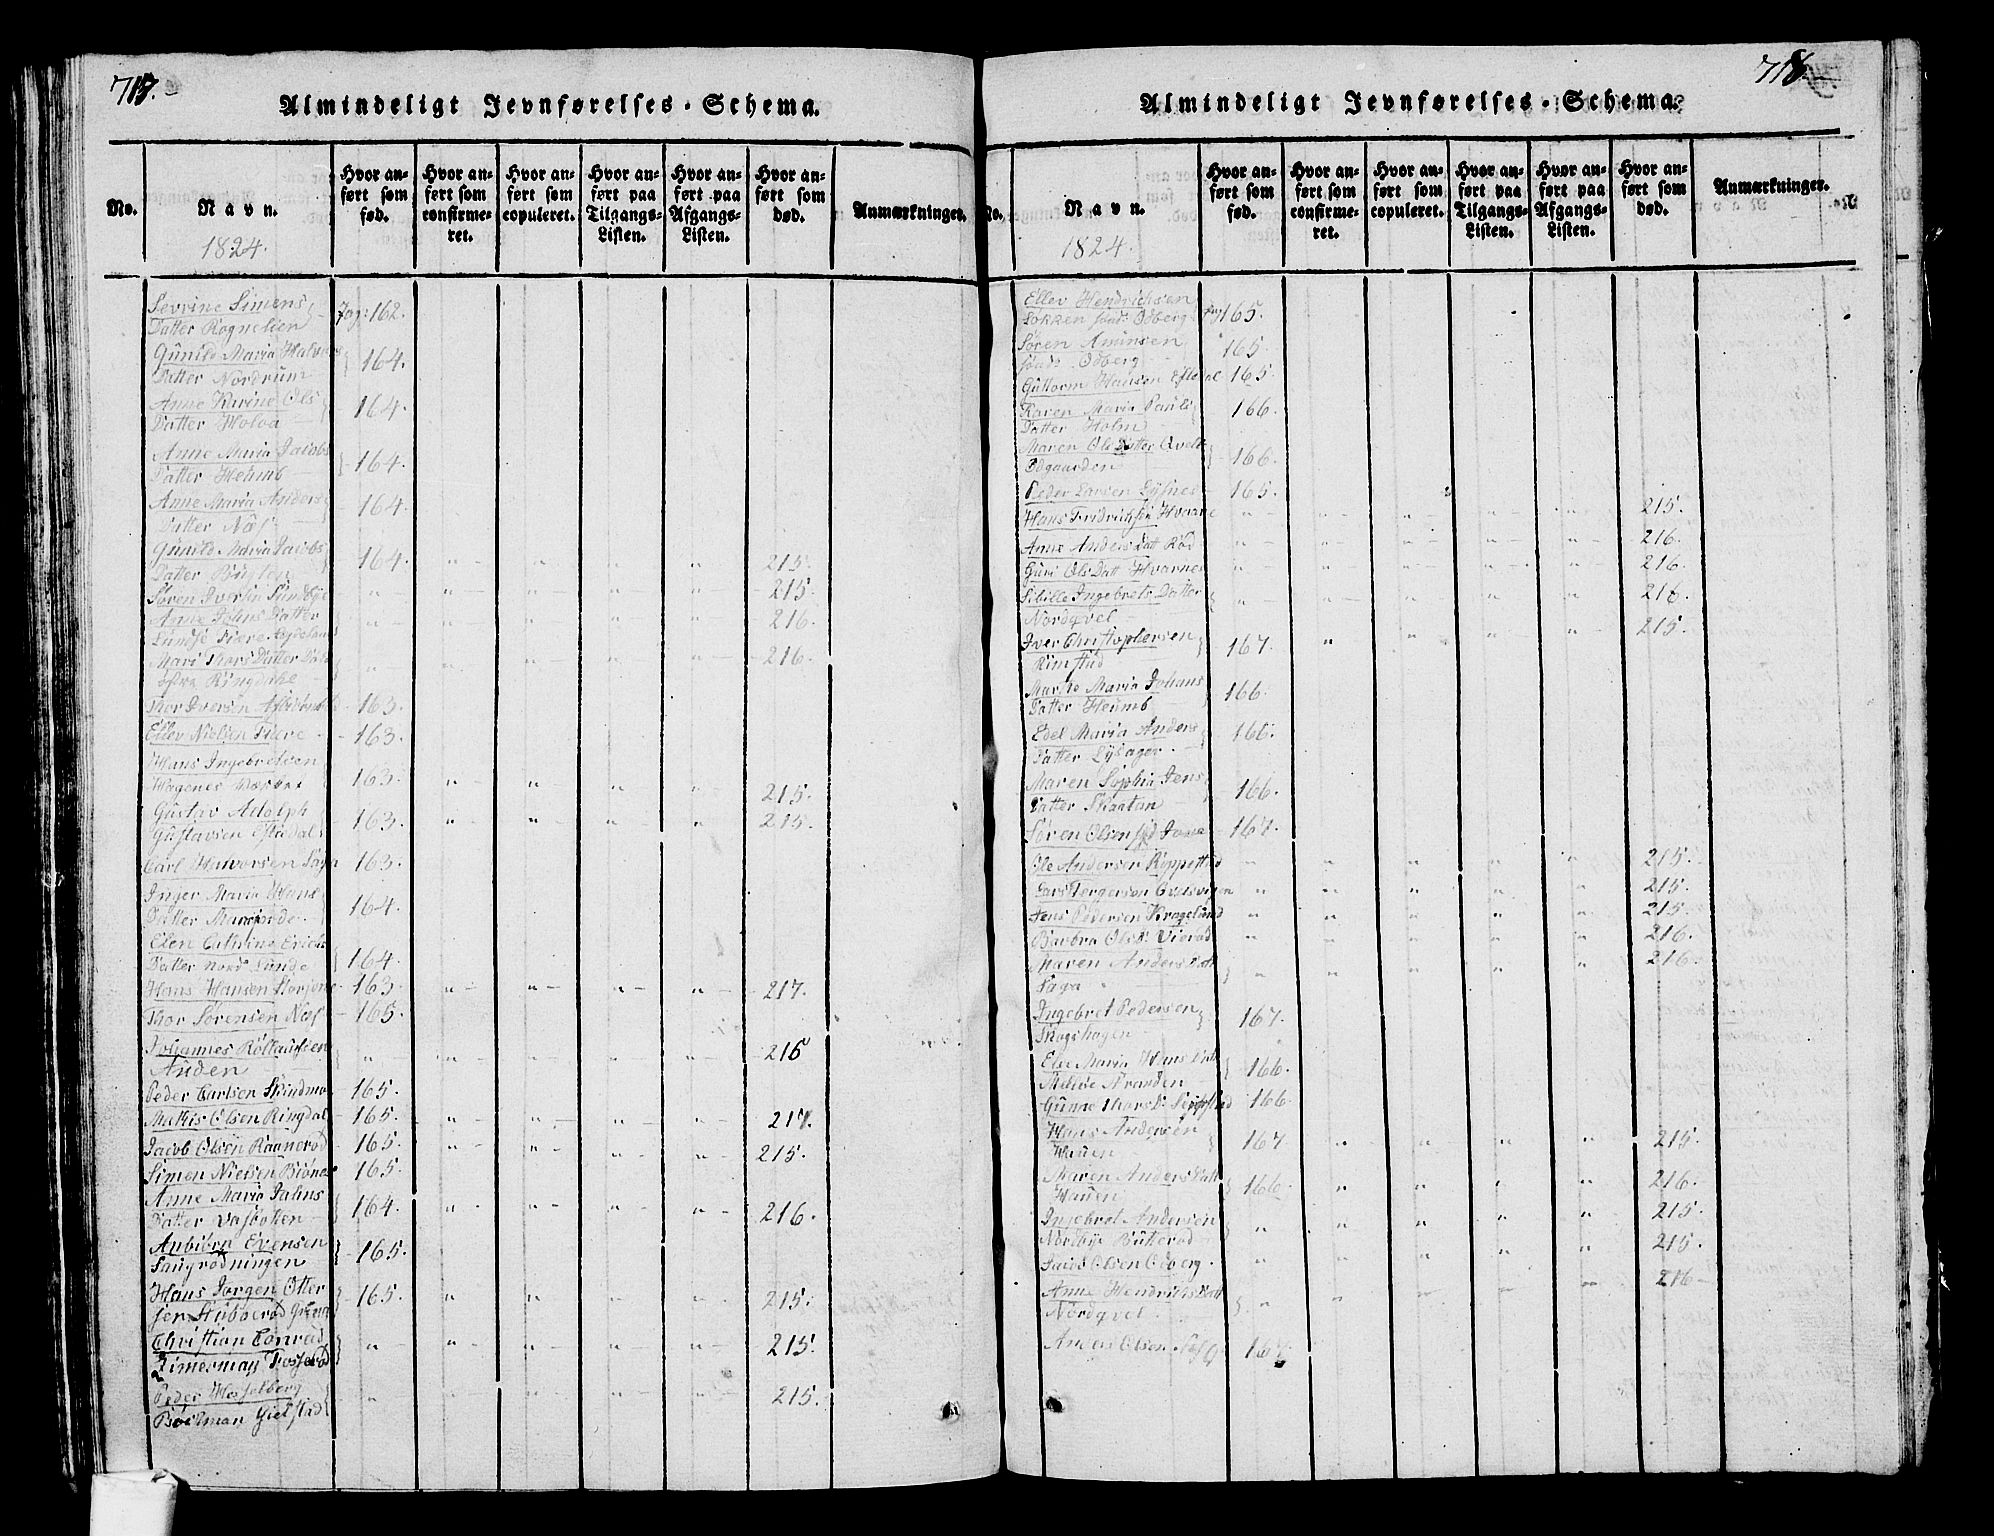 717.
Almindeligt Jevnførelses-Schema.
No.
Navn.
1824.
Hvor anført som fød.
Hvor anført som confirmeret.
Hvor anført som copuleret.
Hvor anført paa Tilgangs-Listen.
Hvor anført paa Afgangs-Listen.
Hvor anført som død.
Anmærkninger.
Sevrine Simens
Datter Rognelien pag: 162.
Gunild Maria Halvors
Datter Nordrum 164.
Anne Karine Ols
Datter Holva 164.
Anne Maria Jacobs
Datter Heumb 164.
Anne Maria Anders
Datter Næs 164.
Gunild Maria Jacobs
Datter 164. " " " " 215.
Søren Iversen Sundbye " " " " " 215.
Anne Johns Datter
Lundse Fiære " " " " " 216.
Mari Thors Datter
Ringdahl " " " " " 216.
Thor Iversen 163.
Ellev Nielsen Fiære 163.
Hans Ingebretsen
Hagenes 163. " " " " 215.
Gustav Adolph
Gustavsen Eftedal 163. " " " " 215.
Carl Halvorsen Saga 163.
Inger Maria Hans
Datter 164.
Elen Cathrine Erichs
Datter nord Lunde 164.
Hans Hansen 163. " " " " 217.
Thor Sørensen Næs 165.
Johannes Rollaufsen
Auden " " " " " 216
Peder Carlsen 165.
Mathis Olsen Ringdal 165. " " " " 217.
Jacob Olsen Raanerød 165. " " " " 215.
Simen Nielsen 165.
Anne Maria Jahns
Datter Vasbotten 164. " " " " 216.
Anbiørn Evensen
Saugrødningen 165.
Hans Jørgen Otter
sen 165. " " " " 215.
Christian Conrad
Zimerman " " " " " 215.
Peder Hesselberg
Bøckman Gielstad " " " " " 215.
718.
Almindeligt Jevnførelses-Schema.
No.
Navn.
1824.
Hvor anført som fød.
Hvor anført som confirmeret.
Hvor anført som copuleret.
Hvor anført paa Tilgangs-Listen.
Hvor anført paa Afgangs-Listen.
Hvor anført som død.
Anmærkninger.
Ellev Hendrichsen
Løkken Odberg pag 165.
Søren Amunsen
Odberg 165.
Guttorm Hansen Eftedal 165.
Karen Maria Pauls
Datter Holm 166.
Maren Ols Datter Qvelle
Ødgaarden 166.
Peder Larsen Lysnes 165.
Hans Fridrichsen Hvaare " " " " " 215.
Anne Anders Datt Rød " " " " " 216.
Guri Ols Datt Hvarnes " " " " " 216.
Sibille Ingebrets Datter
Nordqvel " " " " " 216.
Iver Christophersen
Rimstad 167. " " " " 215.
Marthe Maria Johans
Datter Heumb 166.
Edel Maria Anders
Datter Lysager 166.
Maren Sophia Jens
Datter Skaatan 166.
Søren Olsen 167.
Ole Andersen Røppestad " " " " " 215.
Lars Jørgensen " " " " " 215.
Jens Pedersen Kragelund " " " " " 215.
Barbra Ols Dr Vierød " " " " " 216.
Maren Anders Datt
Saga " " " " " 216.
Ingebret Pedersen
Skogshagen 167.
Else Maria Hans Datt
166.
Gunne Thors Dr 166.
Hans Andersen
Hauen 167 " " " " 215.
Maren Anders Datt
Hauen 166. " " " " 216.
Ingebret Andersen
Nordbye " " " " " 215.
Jacob Olsen Odberg " " " " " 215.
Anne Hendrichs Datt
Nordqvel " " " " " 216
Anders Olsen 167